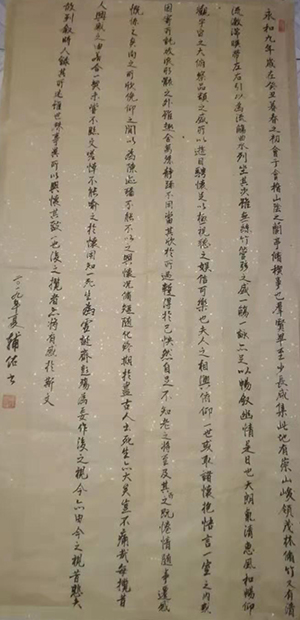 永和九年歲在癸丑暮春之初會于會稽山陰之蘭亭脩禊事也羣賢畢至少長咸集此地有崇山峻領茂林脩竹又有清
流激湍暎帶左右引以為流觴曲水列坐其次雖無絲竹管弦之盛一觴一詠亦足以暢叙幽情是日也天朗氣清惠風和暢仰
觀宇宙之大俯察品類之盛所以遊目騁懷足以極視聽之娛信可樂也夫人之相與俯仰一世或取諸懷抱悟言一室之內或
因寄所託放浪形骸之外雖趣舍萬殊靜躁不同當其欣於所遇蹔得於己怏然自足不知老之將至及其所之既惓情隨事遷感
慨係之矣向之所欣俛仰之間以為陳迹猶不能不以之興懷況脩短隨化終期於盡古人云死生亦大矣豈不痛哉每攬昔
人興感之由若合一契未嘗不臨文嗟悼不能喻之於懷固知一死生為虛誕齊彭殤為妄作後之攬今亦由今之視昔悲夫
故列叙時人錄其所述雖世殊事異所以興懷其致一也後之攬者亦將有感於斯文
二〇一九年夏